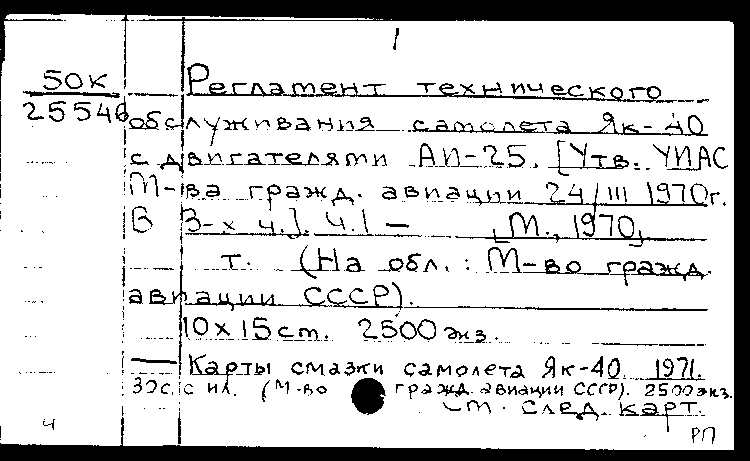 1
50К Регламент технического
25546 обслуживания самолета Як-40
с двигателями АИ-25. [Утв. УИАС
М-ва гражд. авиации 24/III 1970г.
В 3-х ч.]. Ч.1 — [М., 1970]
т. (На обл.: М-во гражд.
авиации СССР).
10х15см. 2500 экз.
— Карты смазки самолета Як-40. 1971.
30с. с ил. (М-во гражд. авиации СССР). 2500экз.
См. след. карт.
ч РП